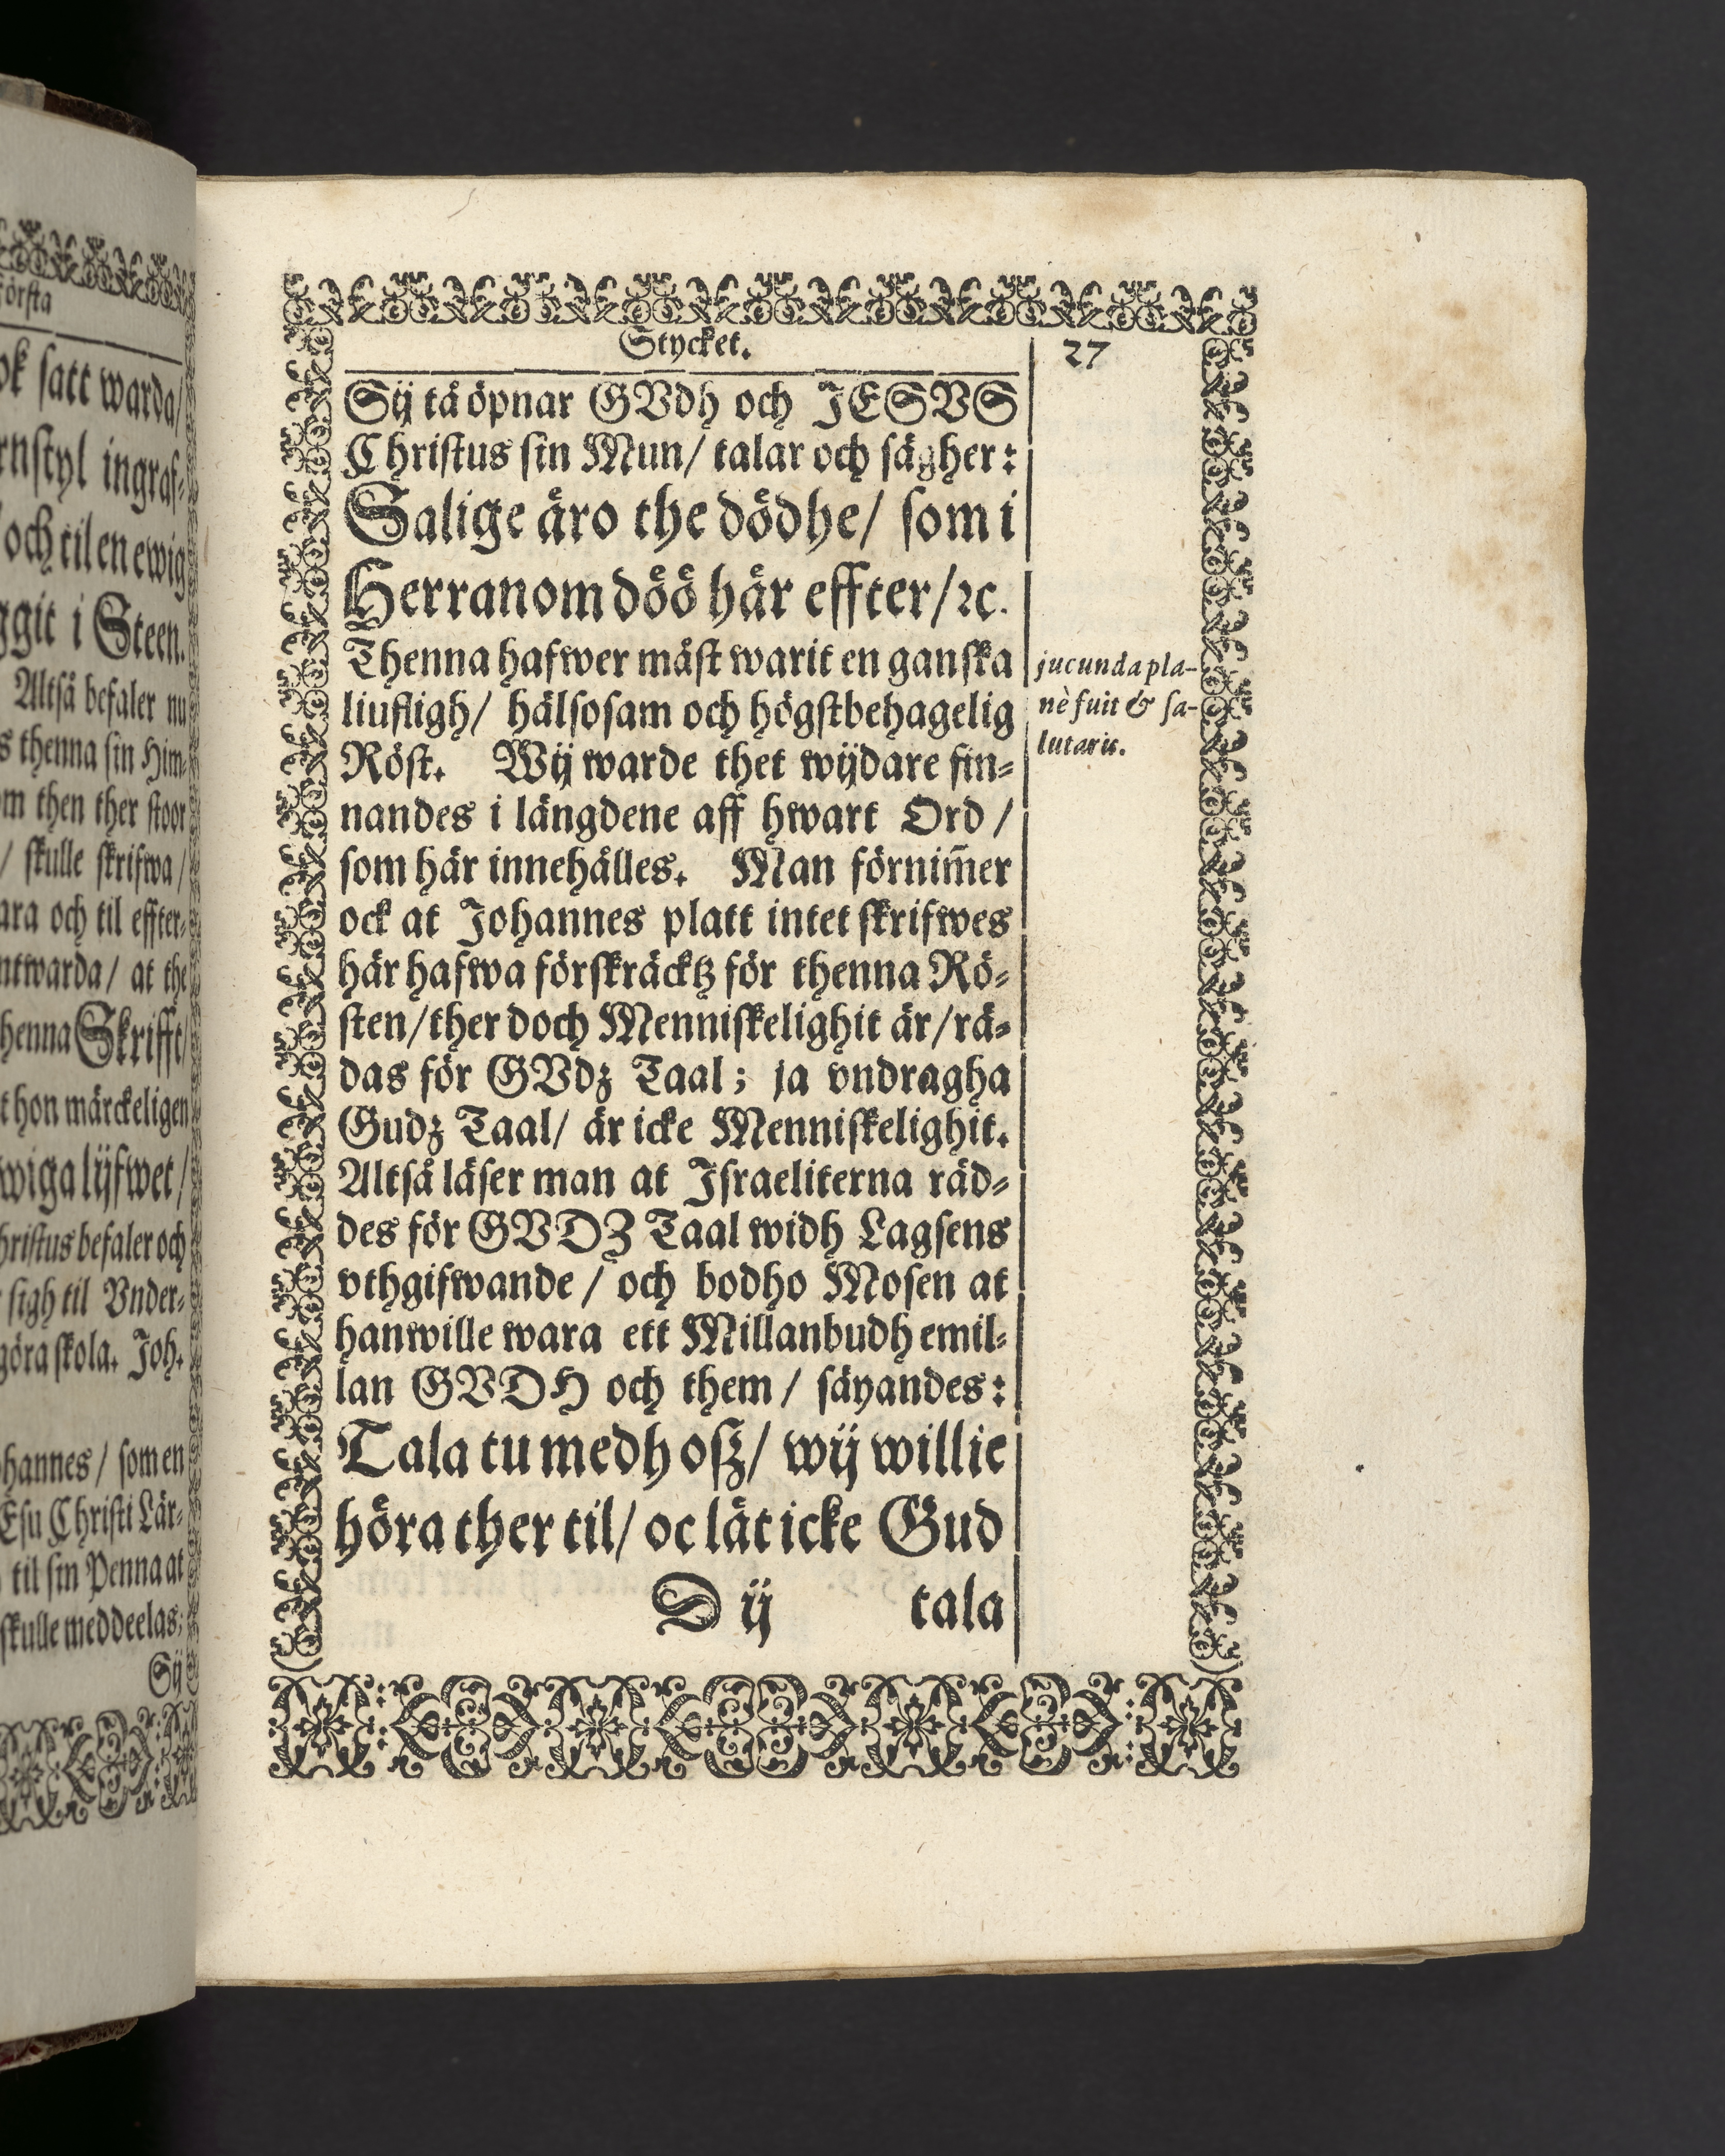 första
ok satt warda/
rnstyl ingraf-
och til en ewig
ggit i Steen.
Altså befaler nu
s thenna sin Him-
om then ther stoor
/ skulle skrifwa/
ara och til effter-
ntwarda/ at the
henna Skrifft/
t hon märckeligen
wiga lijfwet/
hristus befaler och
sigh til Vnder-
göra skola. Joh.
hannes/ som en
Esu Christi Lär-
til sin Penna at
skulle meddeelas;
Sij
Stycket. 27
Sij tå öpnar GVdh och JESVS
Christus sin Mun/ talar och sägher:
Salige äro the dödhe/ som i
Herranom döö här effter/ ꝛc.
Thenna hafwer mäst warit en ganska
liufligh/ hälsosam och högstbehagelig
Röst. Wij warde thet wijdare fin-
nandes i längdene aff hwart Ord/
som här innehålles. Man förnim̃er
ock at Johannes platt intet skrifwes
här hafwa förskräcktz för thenna Rö-
sten/ ther doch Menniskelighit är/ rä-
das för GVdz Taal; ja vndragha
Gudz Taal/ är icke Menniskelighit.
Altså läser man at Israeliterna räd-
des för GVDZ Taal widh Lagsens
vthgifwande/ och bodho Mosen at
han wille wara ett Millanbudh emil-
lan GVDH och them/ säyandes:
Tala tu medh osz/ wij willie
höra ther til/ oc lät icke Gud
D ij tala
jucunda pla-
nè fuit & sa-
lutaris.